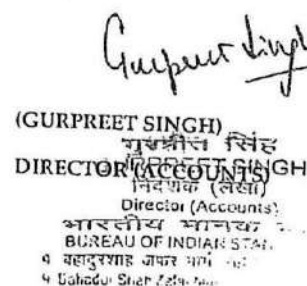 Gurpreet Singh
(GURPREET SINGH)
गुरप्रीत सिंह
DIRECTOR (ACCOUNTS)
GURPREET SINGH
निदेशक (लेखा)
Director (Accounts)
भारतीय मानक
BUREAU OF INDIAN
9 बहादुरशाह जफर मार्ग
9 Bahadur Shah